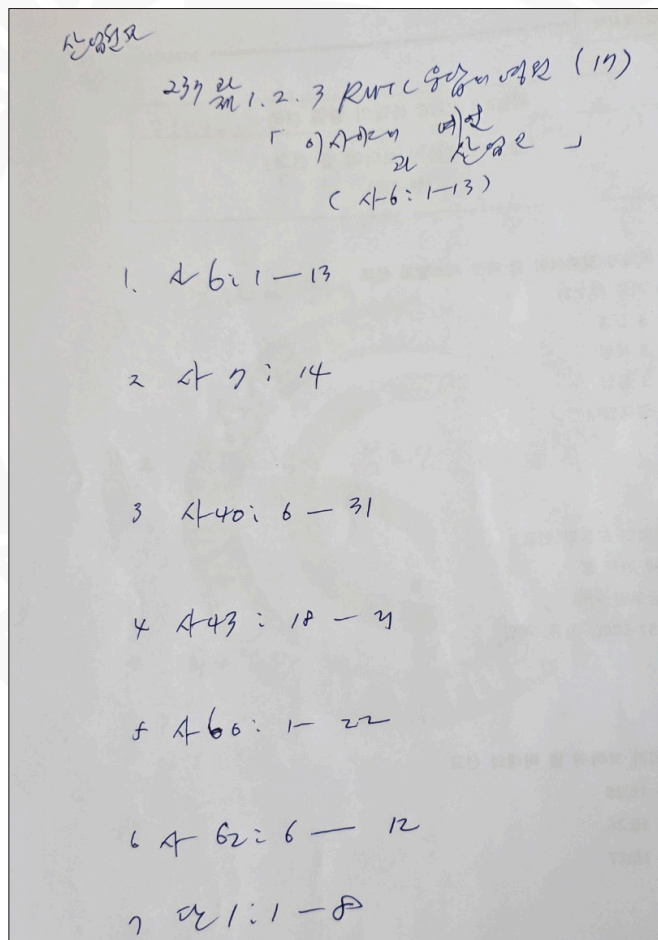 산업선교
237과제 1. 2. 3 RUTC 응답의 영원 (17)
「이사야의 예언과 산업인」
(사6: 1-13)
1. 사 6: 1 - 13
2 사 7: 14
3 사40: 6 - 31
4 사43: 18 - 21
5 사60: 1- 22
6 사 62: 6 - 12
7 단 1: 1 - 8